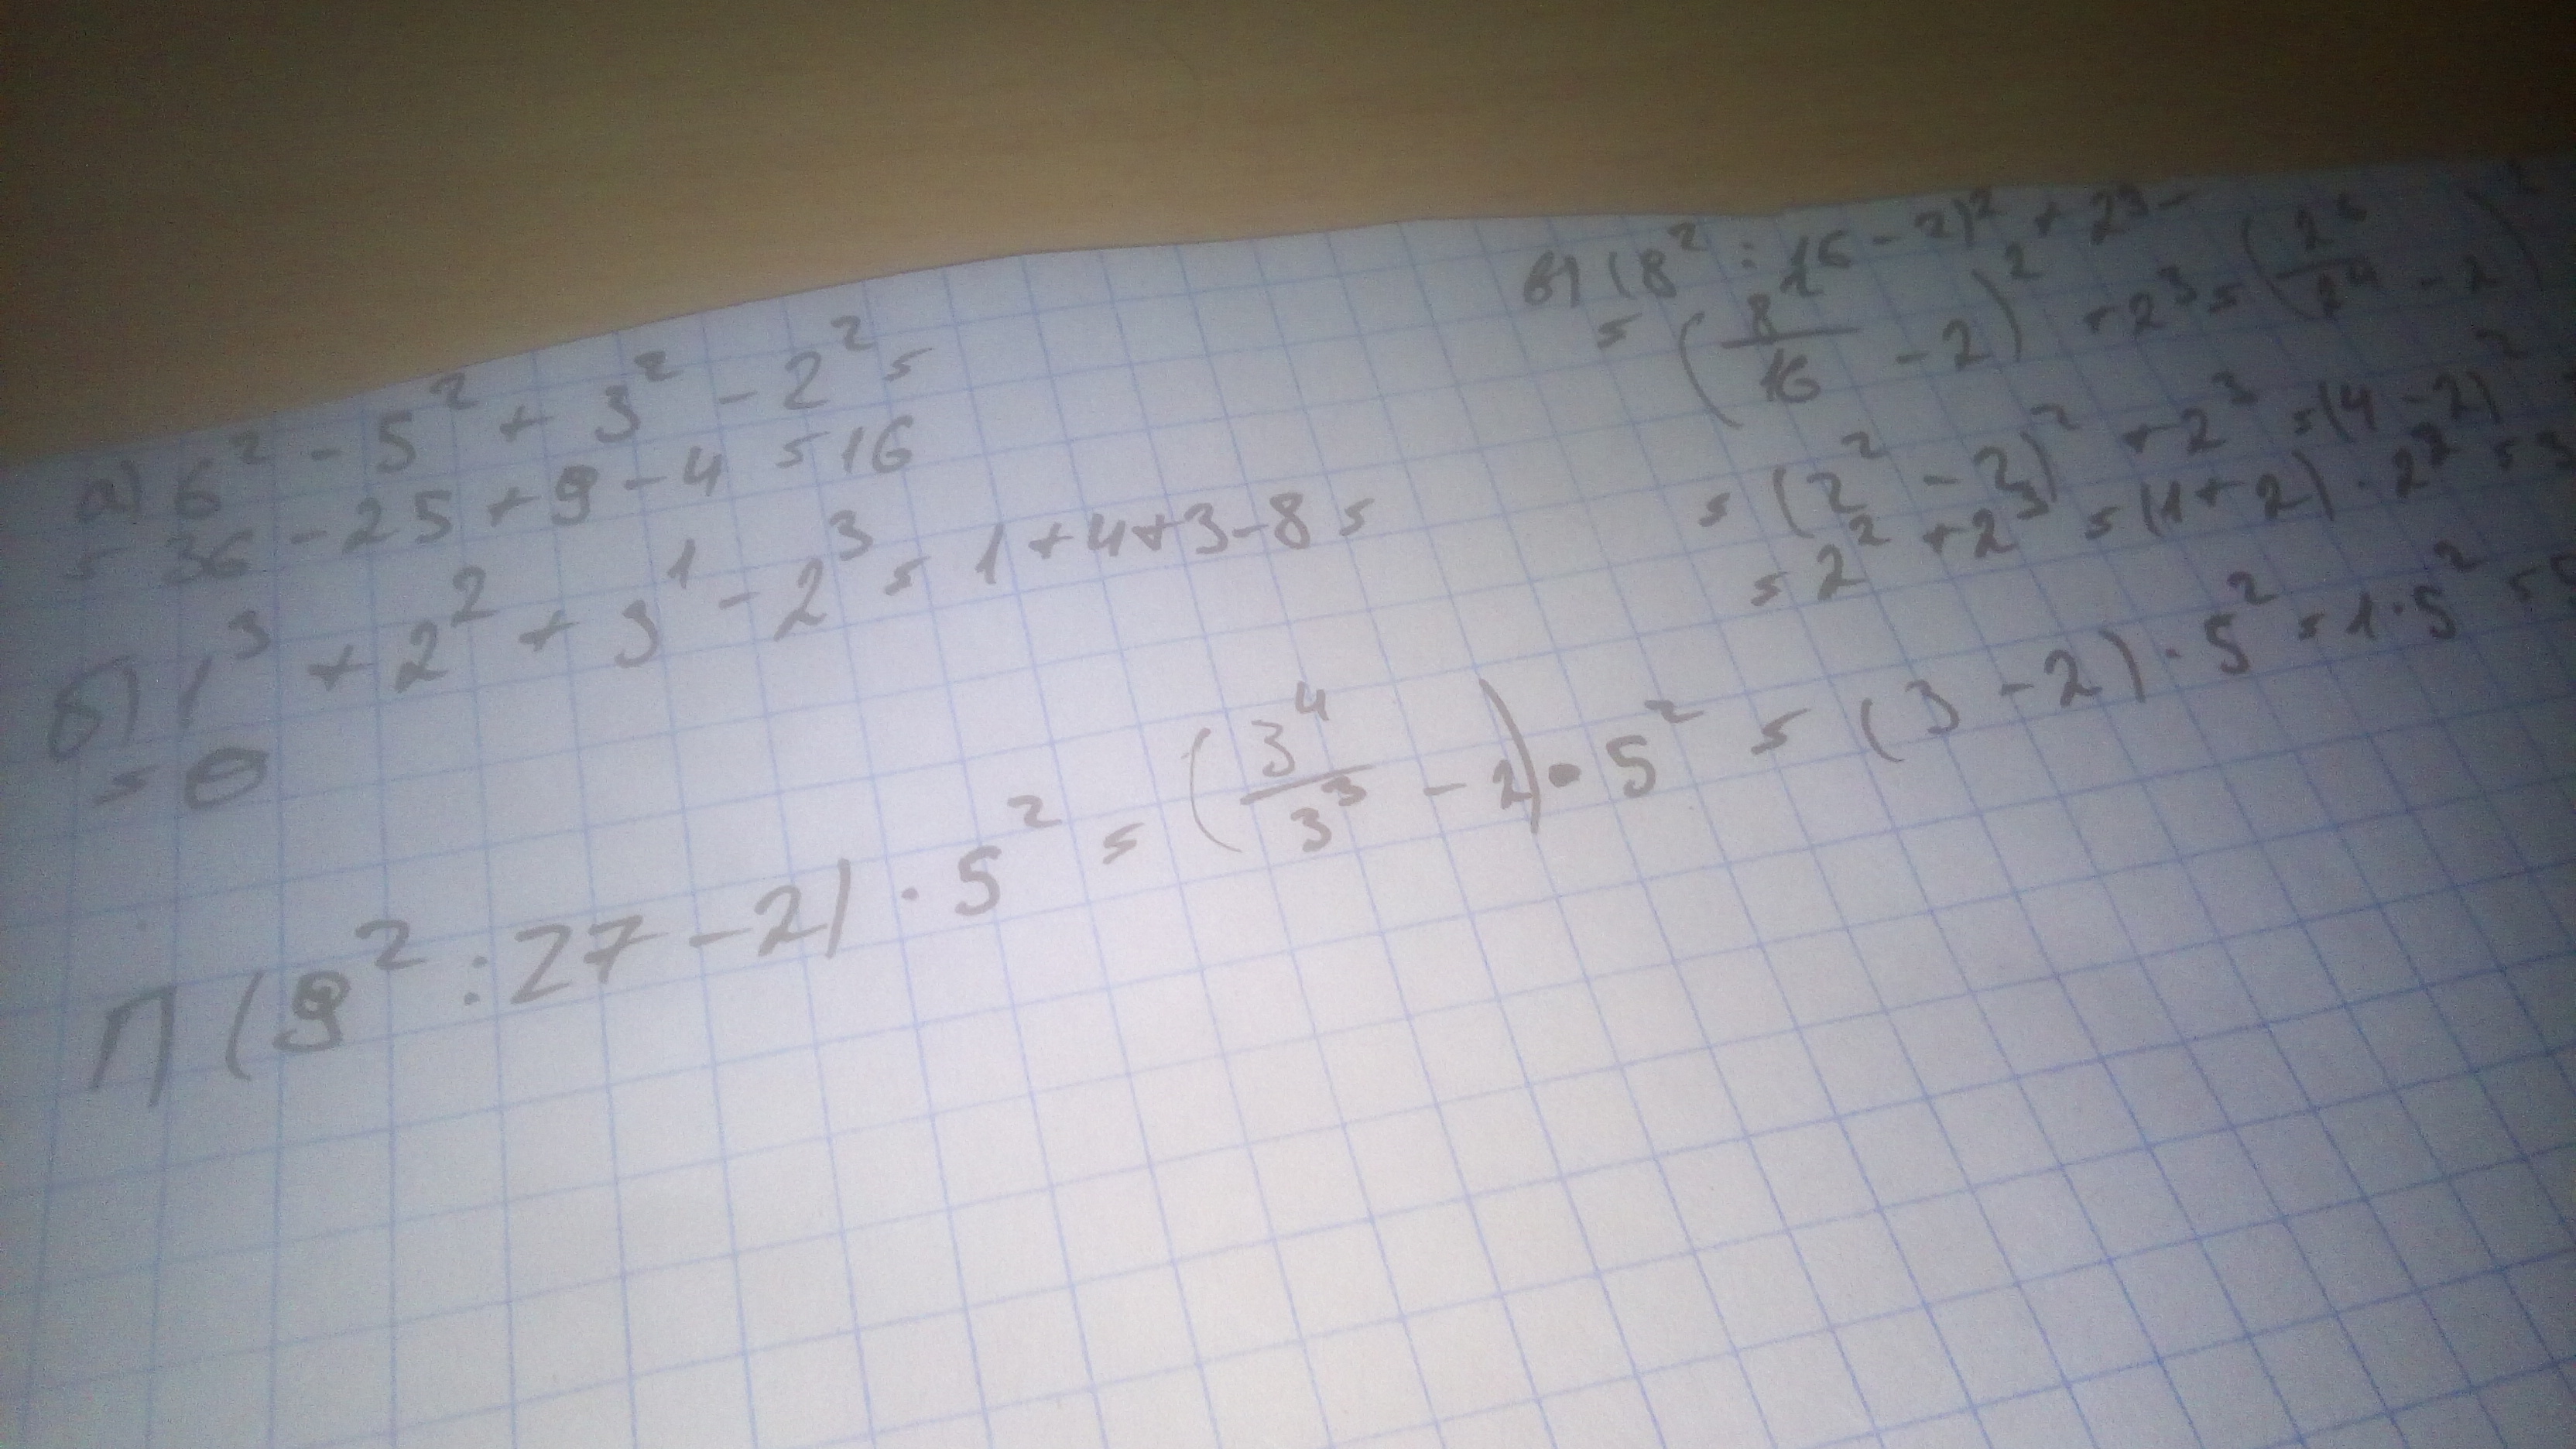 а) 6² - 5² + 3² - 2² =
= 36 - 25 + 9 - 4 = 16
б) 1³ + 2² + 3¹ - 2³ = 1 + 4 + 3 - 8 =
= 0
в) (8² : 16 - 2)² + 2³ =
= (8²/16 - 2)² + 2³ = (2⁶/2⁴ - 2)²
= (2² - 2)² + 2³ = (4 - 2)²
= 2² + 2³ = (1 + 2) · 2² = 3
г) (9² : 27 - 2) · 5² = (3⁴/3³ - 2) · 5² = (3 - 2) · 5² = 1 · 5² =